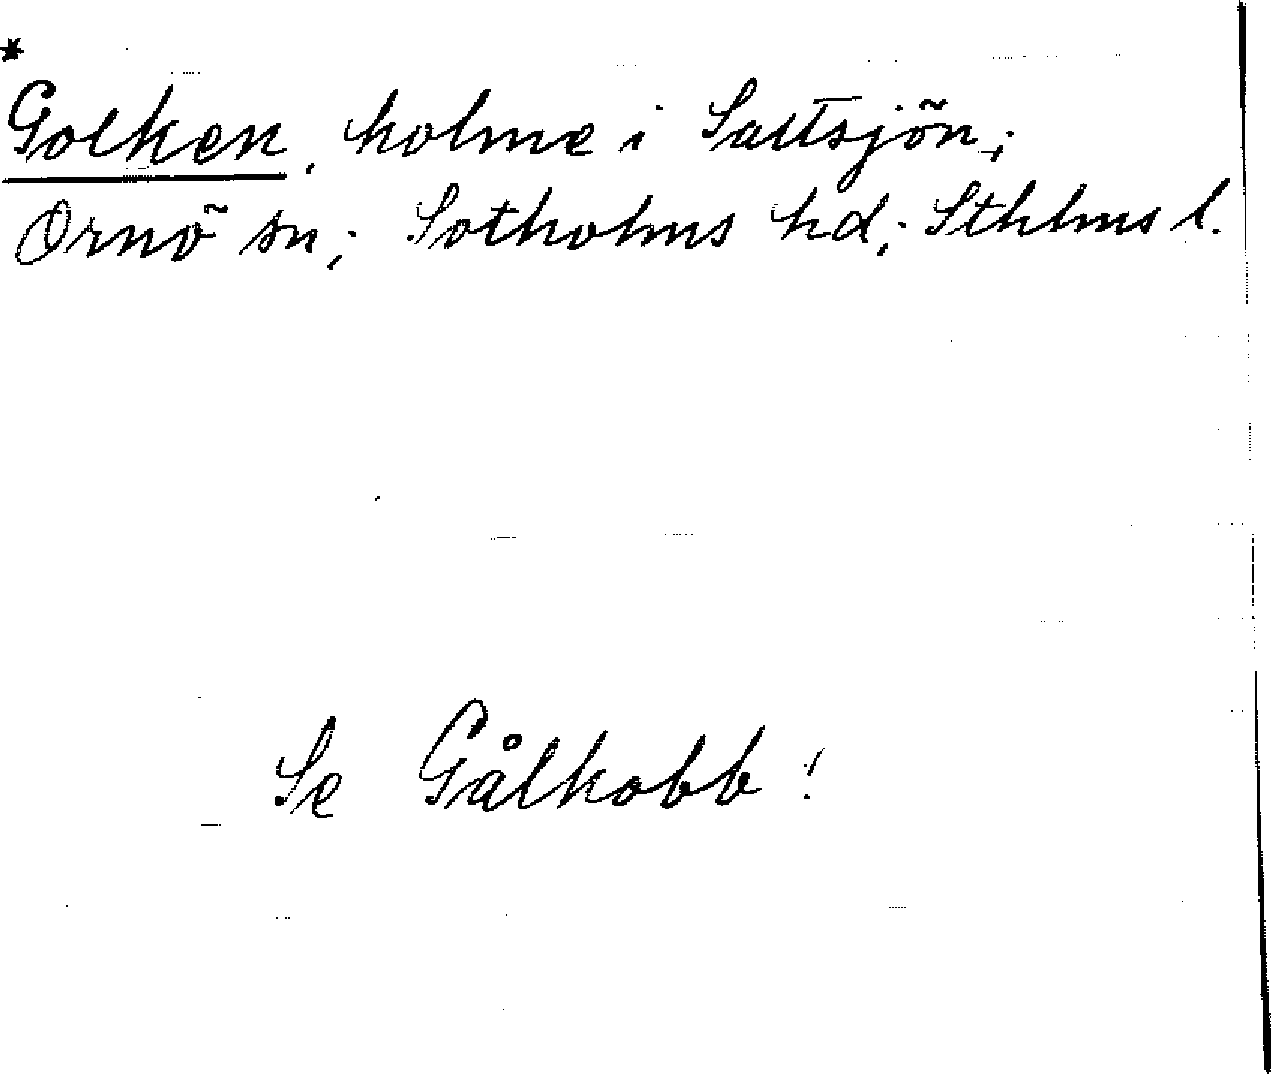 *
Golken, holme i Saltsjön;
Ornö sn; Sotholms hd; Sthlms l.
Se Gålkobb!